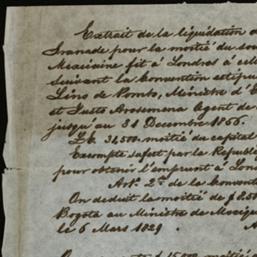 Extrait de la liquidation d
Granade pour la moitié du sou
Mexicaine fit à Londres à cell
suivant la Convention estipu
Lino de Pombo, Ministre d'E
et Justo Arosemena Agent de
jusqu'au 31 Decembre 1856.
L.E. 31,500 moitié du capital
Escompte satisft par la Républi
pour obtenir l'emprunt à Lon
Art.º 2.me de la Convent
On deduit la moitié de £ 2.50
Bogota au Ministre de Mexique
le 6 Mars 1829. A
15000 moitié